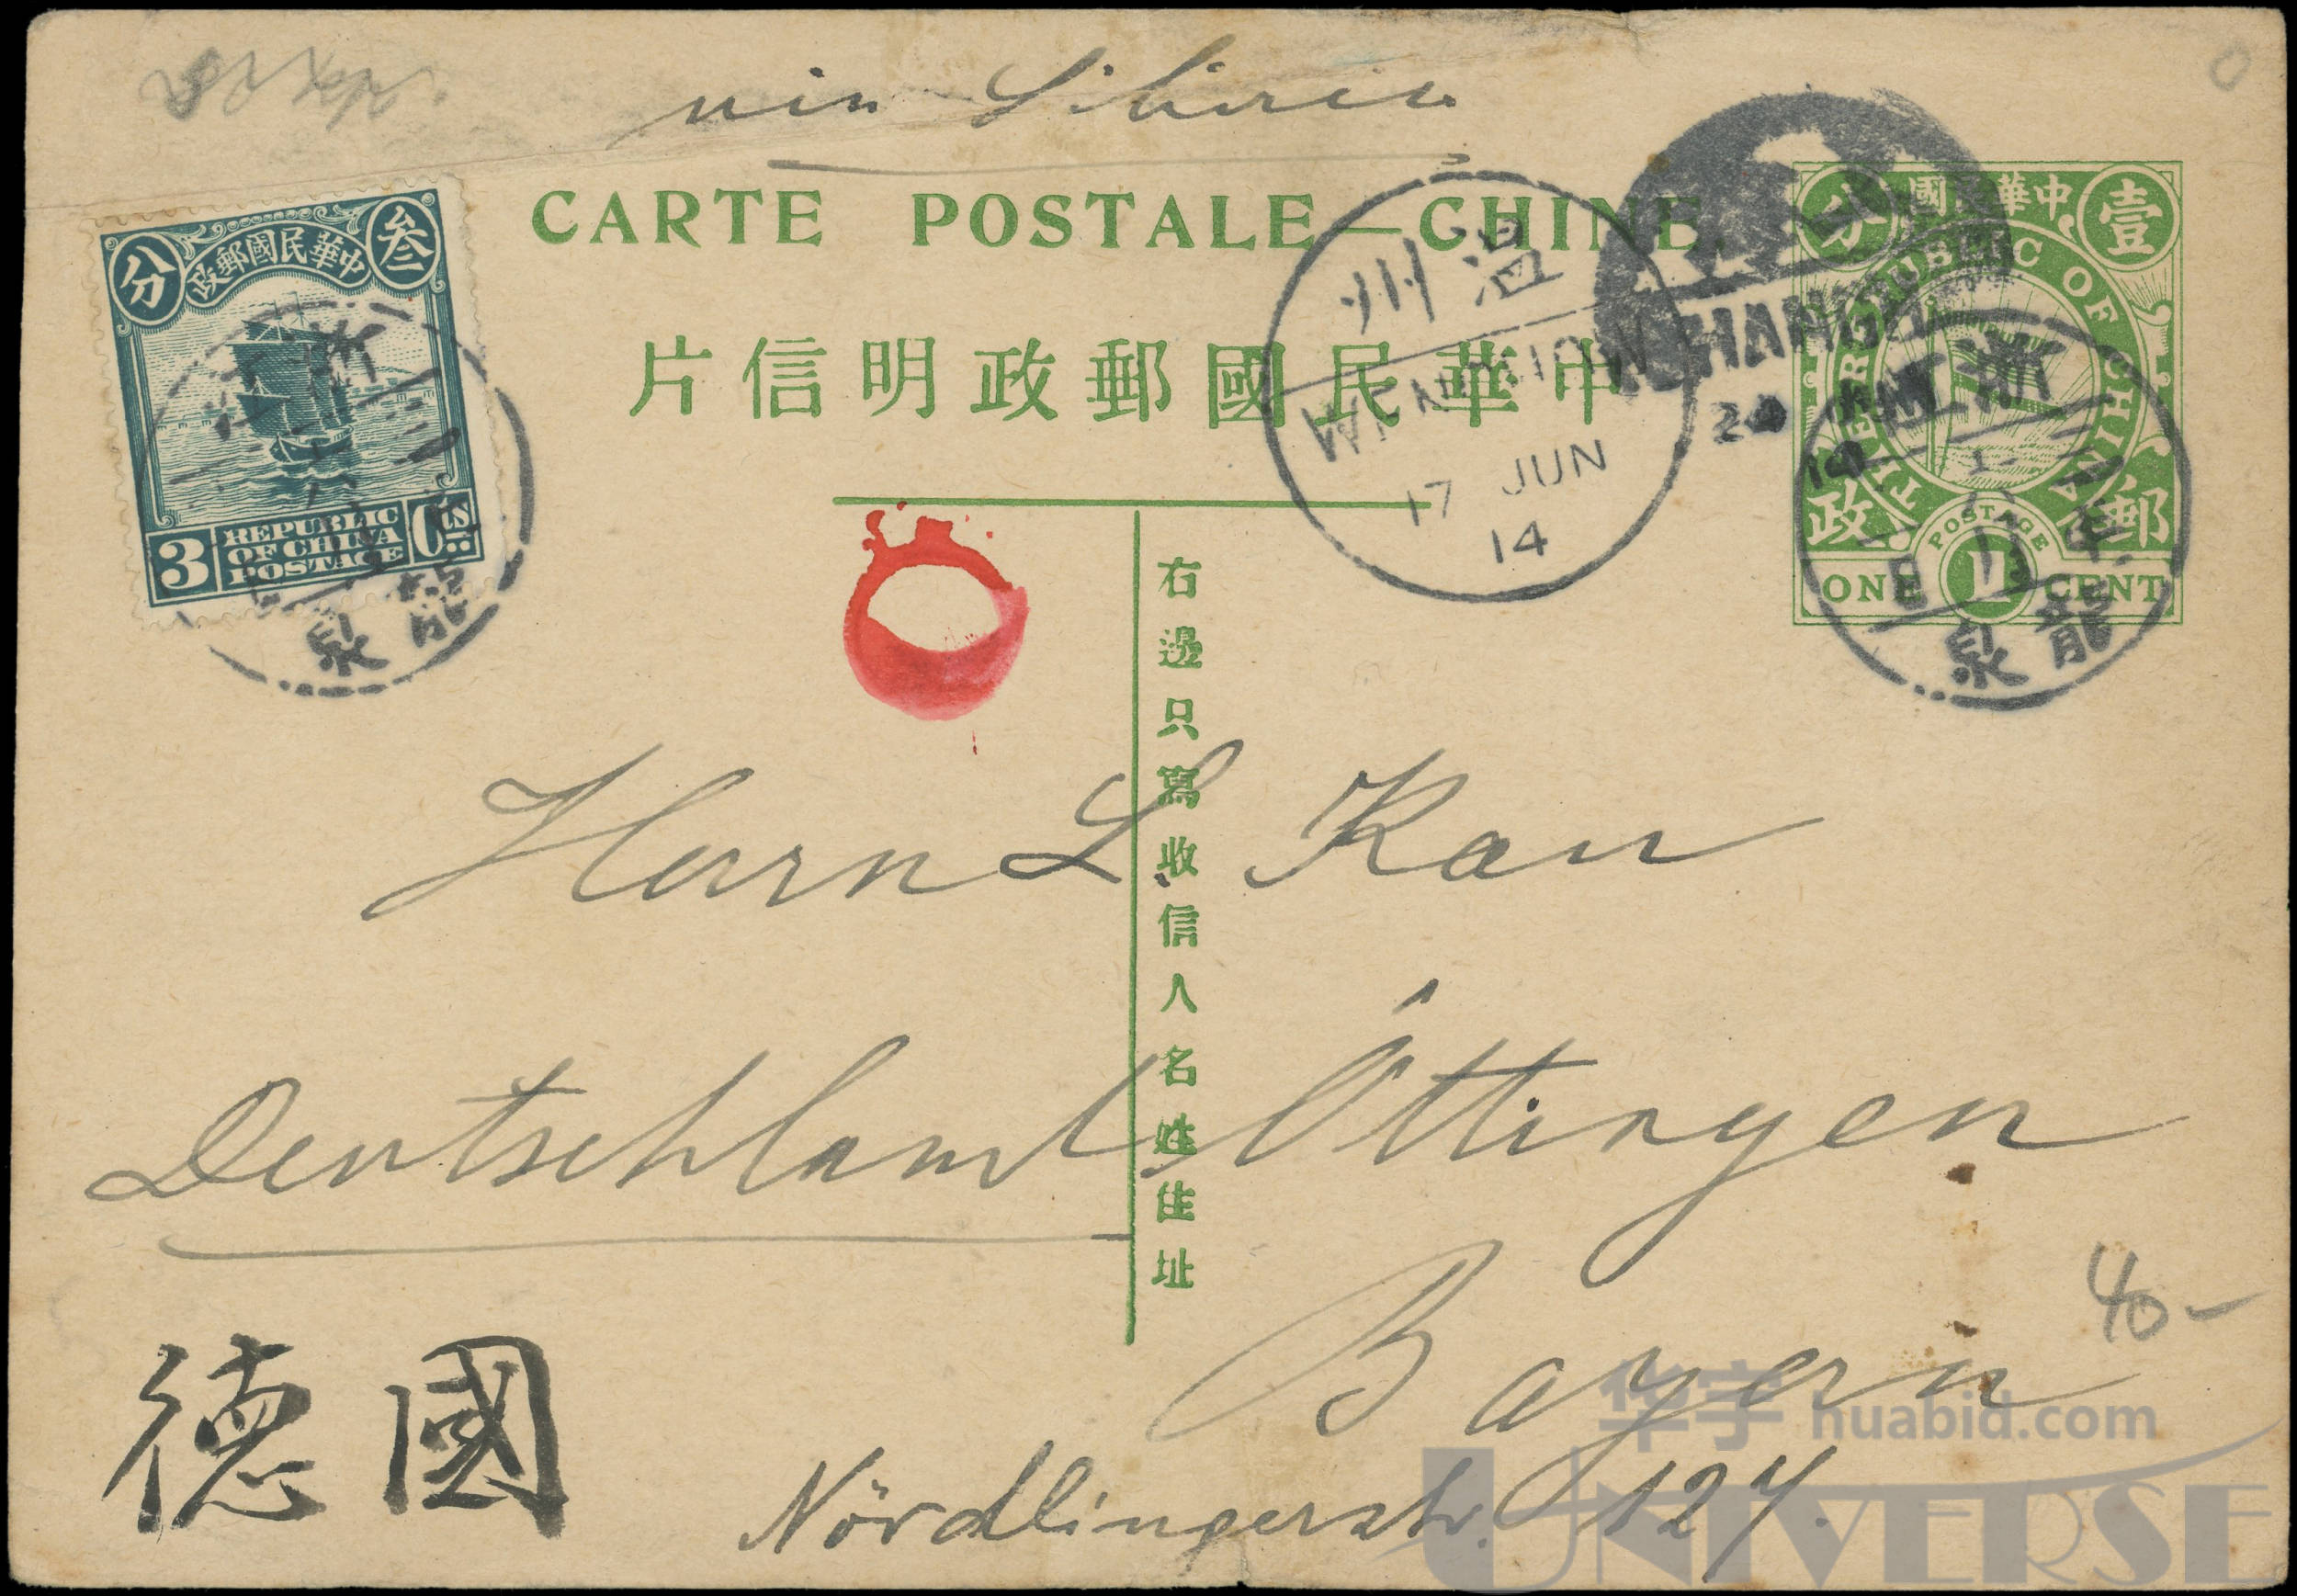 via Siberia
CARTE POSTALE—CHINE.
片信明政郵國民華中
分 政郵國民華中 叁
3 REPUBLIC OF CHINA POSTAGE Cts
泉龍
州溫
WENCHOW
17 JUN
14
SHANGHAI
14
分 國民華中 壹
REPUBLIC OF CHINA
政 郵
POSTAGE
ONE 1 CENT
江浙
泉龍
右邊只寫收信人名姓住址
Herrn L Kau
Deutschland Öttingen
Bayern
40-
德國
Nördlingerstr. 127.
华宇 huabid.com
UNIVERSE